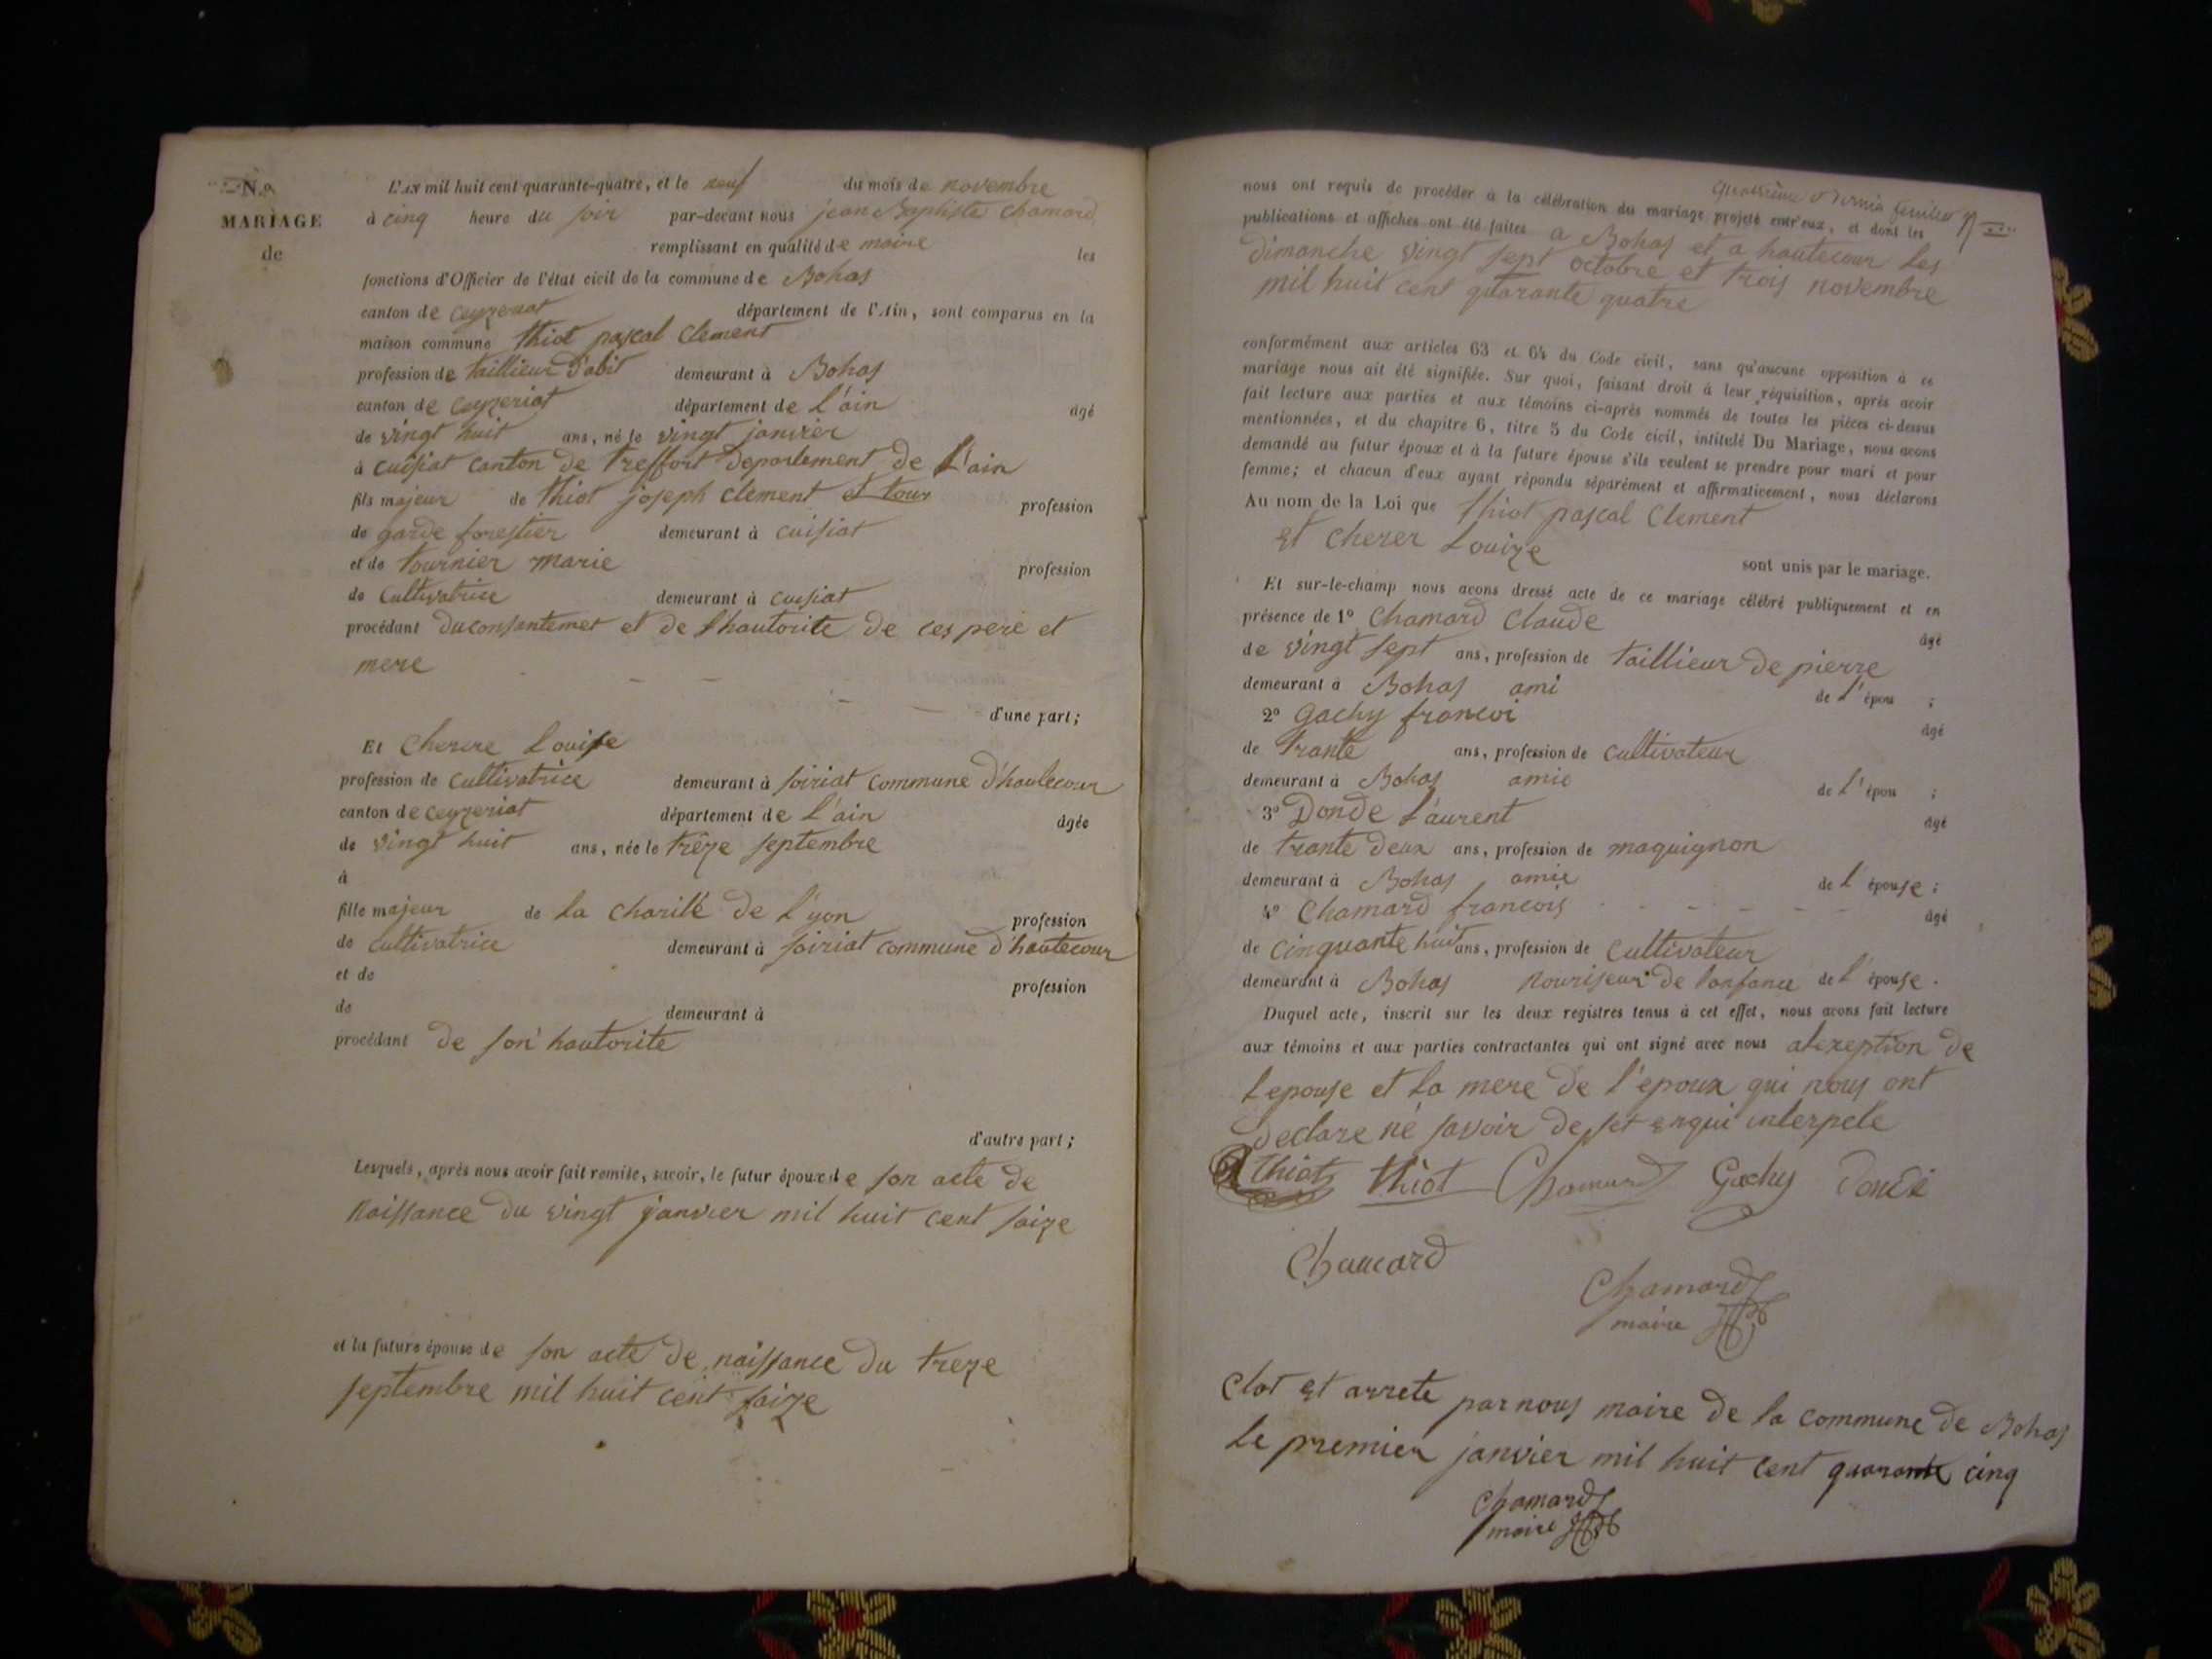 N.o
MARIAGE
de
L'AN mil huit cent quarante-quatre, et le neuf du mois de novembre
à cinq heure du soir par-devant nous jean Baptiste chamard
remplissant en qualité de maire les
fonctions d'Officier de l'état civil de la commune de Bohas
canton de ceyzeriat département de l'Ain, sont comparus en la
maison commune thiot pascal clement
profession de taillieur d'abit demeurant à Bohas
canton de ceyzeriat département de l'ain âgé
de vingt huit ans, né le vingt janvier
à cuisiat canton de treffort departement de l'ain
fils majeur de thiot joseph clement et tour profession
de garde forestier demeurant à cuisiat
et de tournier marie profession
de cultivatrice demeurant à cuisiat
procédant du consantemet et de l'hautorite de ces pere et
mere
d'une part;
Et cherere Louise
profession de cultivatrice demeurant à soiriat commune d'hautecour
canton de ceyzeriat département de l'ain âgée
de vingt huit ans, née le trêze septembre
à
fille majeur de la charité de l'yon profession
de cultivatrice demeurant à soiriat commune d'hautecour
et de profession
de demeurant à
procédant de son hautorite
d'autre part;
Lesquels, après nous avoir fait remise, savoir, le futur époux de son acte de
naissance du vingt janvier mil huit cent saize
et la future épouse de son acte de naissance du treze
septembre mil huit cent saize
quatrieme et dernier feuillet
nous ont requis de procéder à la célébration du mariage projeté entr'eux, et dont les
publications et affiches ont été faites a Bohas et a hautecour les
dimanche vingt sept octobre et trois novembre
mil huit cent quarante quatre
conformément aux articles 63 et 64 du Code civil, sans qu'aucune opposition à ce
mariage nous ait été signifiée. Sur quoi, faisant droit à leur réquisition, après avoir
fait lecture aux parties et aux témoins ci-après nommés de toutes les pièces ci-dessus
mentionnées, et du chapitre 6, titre 5 du Code civil, intitulé Du Mariage, nous avons
demandé au futur époux et à la future épouse s'ils veulent se prendre pour mari et pour
femme; et chacun d'eux ayant répondu séparément et affirmativement, nous déclarons
Au nom de la Loi que thiot pascal clement
et cherer Louize sont unis par le mariage.
Et sur-le-champ nous avons dressé acte de ce mariage célébré publiquement et en
présence de 1o chamard claude âgé
de vingt sept ans, profession de taillieur de pierre
demeurant à Bohas ami de l'épou ;
2o gachy francoi âgé
de trante ans, profession de cultivateur
demeurant à Bohas amie de l'épou ;
3o Donde l'aurent âgé
de trante deux ans, profession de maquignon
demeurant à Bohas amie de l épouse ;
4o chamard francois âgé
de cinquante huit ans, profession de cultivateur
demeurant à Bohas nouriseur de l'anfance de l' épouse.
Duquel acte, inscrit sur les deux registres tenus à cet effet, nous avons fait lecture
aux témoins et aux parties contractantes qui ont signé avec nous alexeption de
l'epouse et la mere de l'epoux qui nous ont
declare né savoir de set enqui interpele
thiot thiot Chamard Gachy dondé
Chamard
Chamard
maire
clot et arrete par nous maire de la commune de Bohas
le premier janvier mil huit cent quarante cinq
Chamard
maire